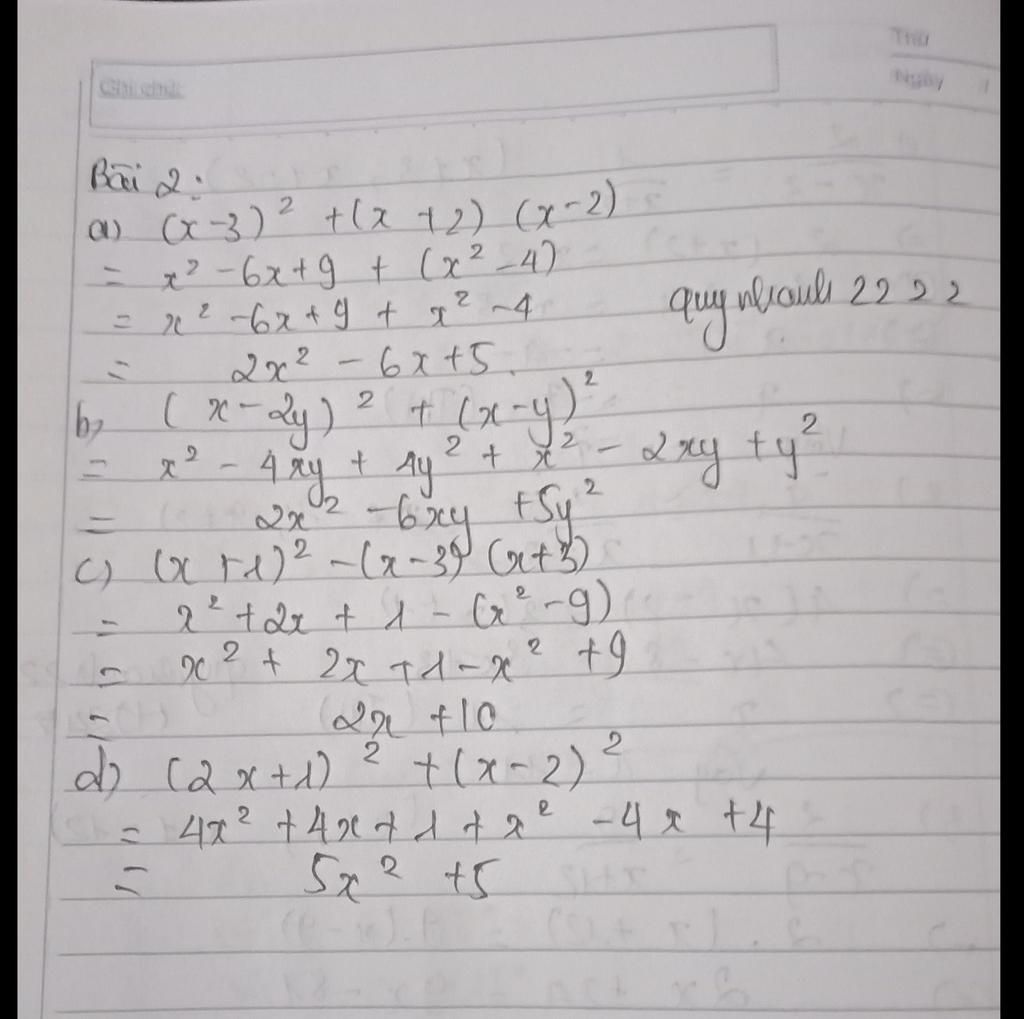 Thứ
Ghi chú:
Ngày
Bài 2:
a) (x-3)² + (x+2) (x-2)
= x² - 6x + 9 + (x² - 4)
= x² - 6x + 9 + x² - 4 quynhanh 2222
= 2x² - 6x + 5.
b) (x - 2y)² + (x - y)²
= x² - 4xy + 4y² + x² - 2xy + y²
= 2x² - 6xy + 5y²
c) (x + 1)² - (x - 3) (x + 3)
= x² + 2x + 1 - (x² - 9)
= x² + 2x + 1 - x² + 9
= 2x + 10
d) (2x + 1)² + (x - 2)²
= 4x² + 4x + 1 + x² - 4x + 4
= 5x² + 5